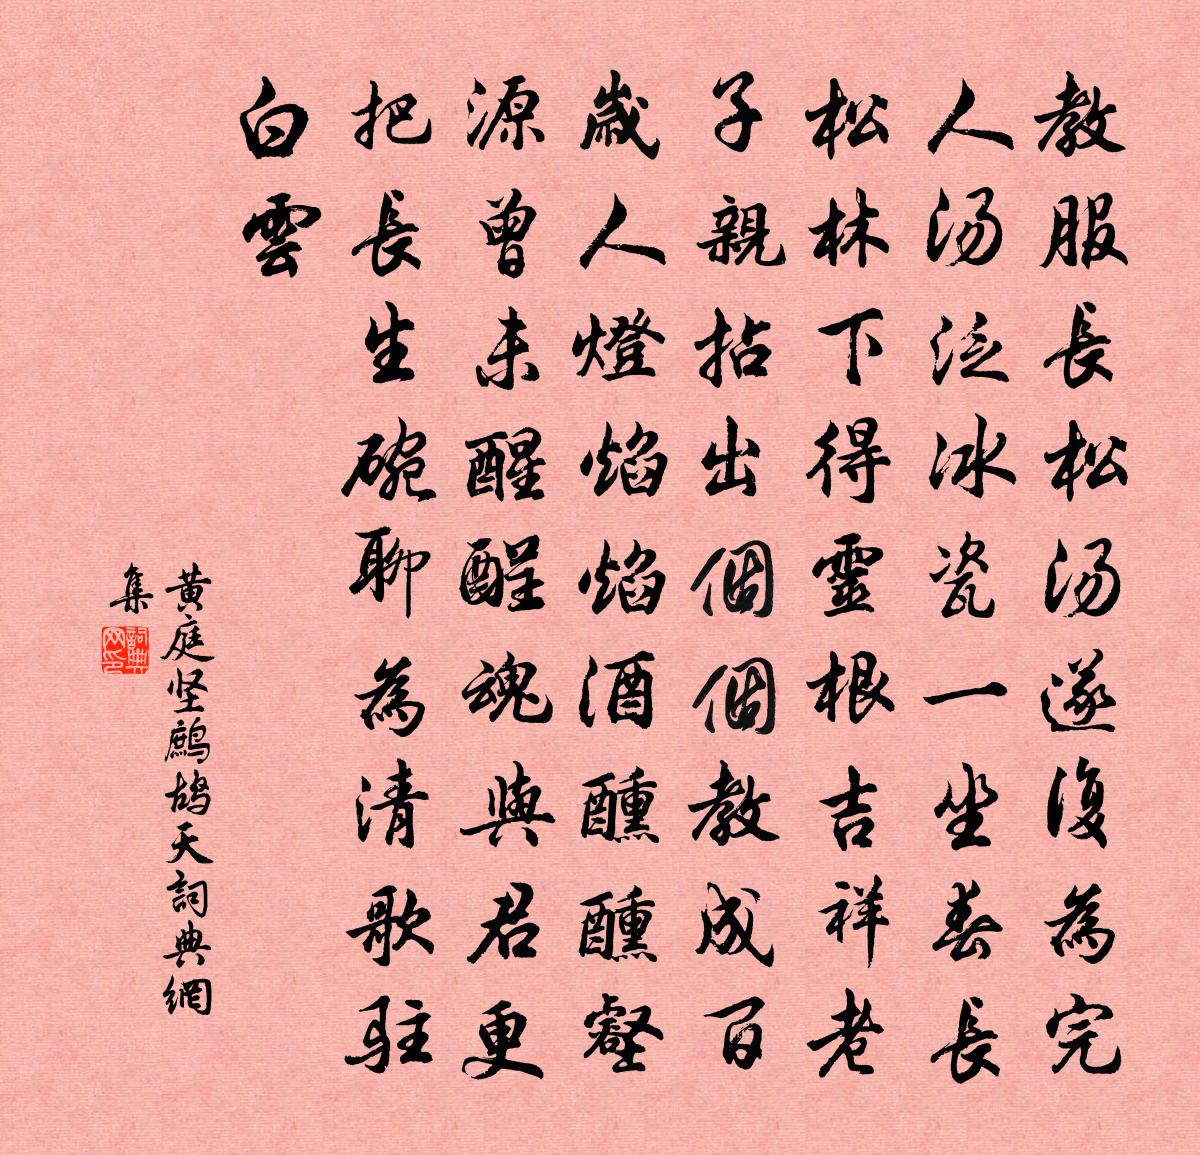 教服長松汤遂復為完
人汤泛冰瓷一坐春長
松林下得靈根吉祥老
子親拈出個個教成百
歲人燈焰焰酒醺醺壑
源曾未醒酲魂與君更
把長生碗聊為清歌駐
白雲
黄庭坚鷓鴣天詞典網
集
詞典网印